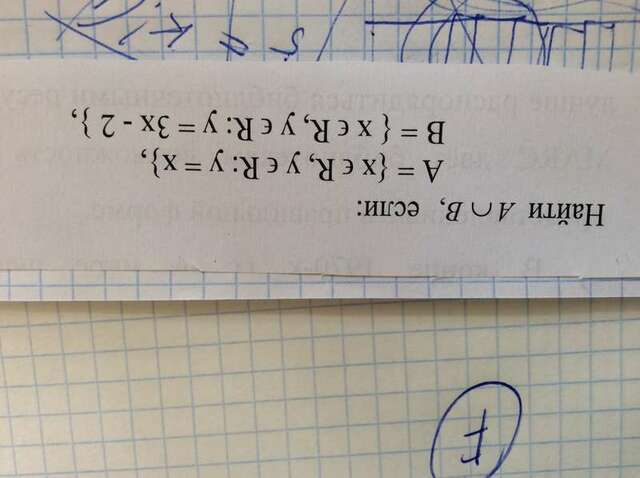 F
Найти A ∩ B, если:
A = {x ϵ R, y ϵ R: y = x},
B = { x ϵ R, y ϵ R: y = 3x - 2 },